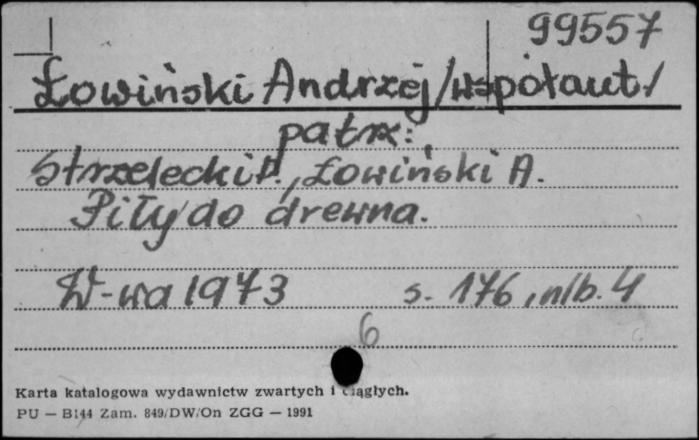 99557
Łowiński Andrzej /współaut./
patrz:
Strzelecki P., Łowiński A.
Piły do drewna.
W-wa 1973 s. 176, nlb. 4
6
Karta katalogowa wydawnictw zwartych i ciągłych.
PU — B144 Zam. 849/DW/On ZGG — 1991